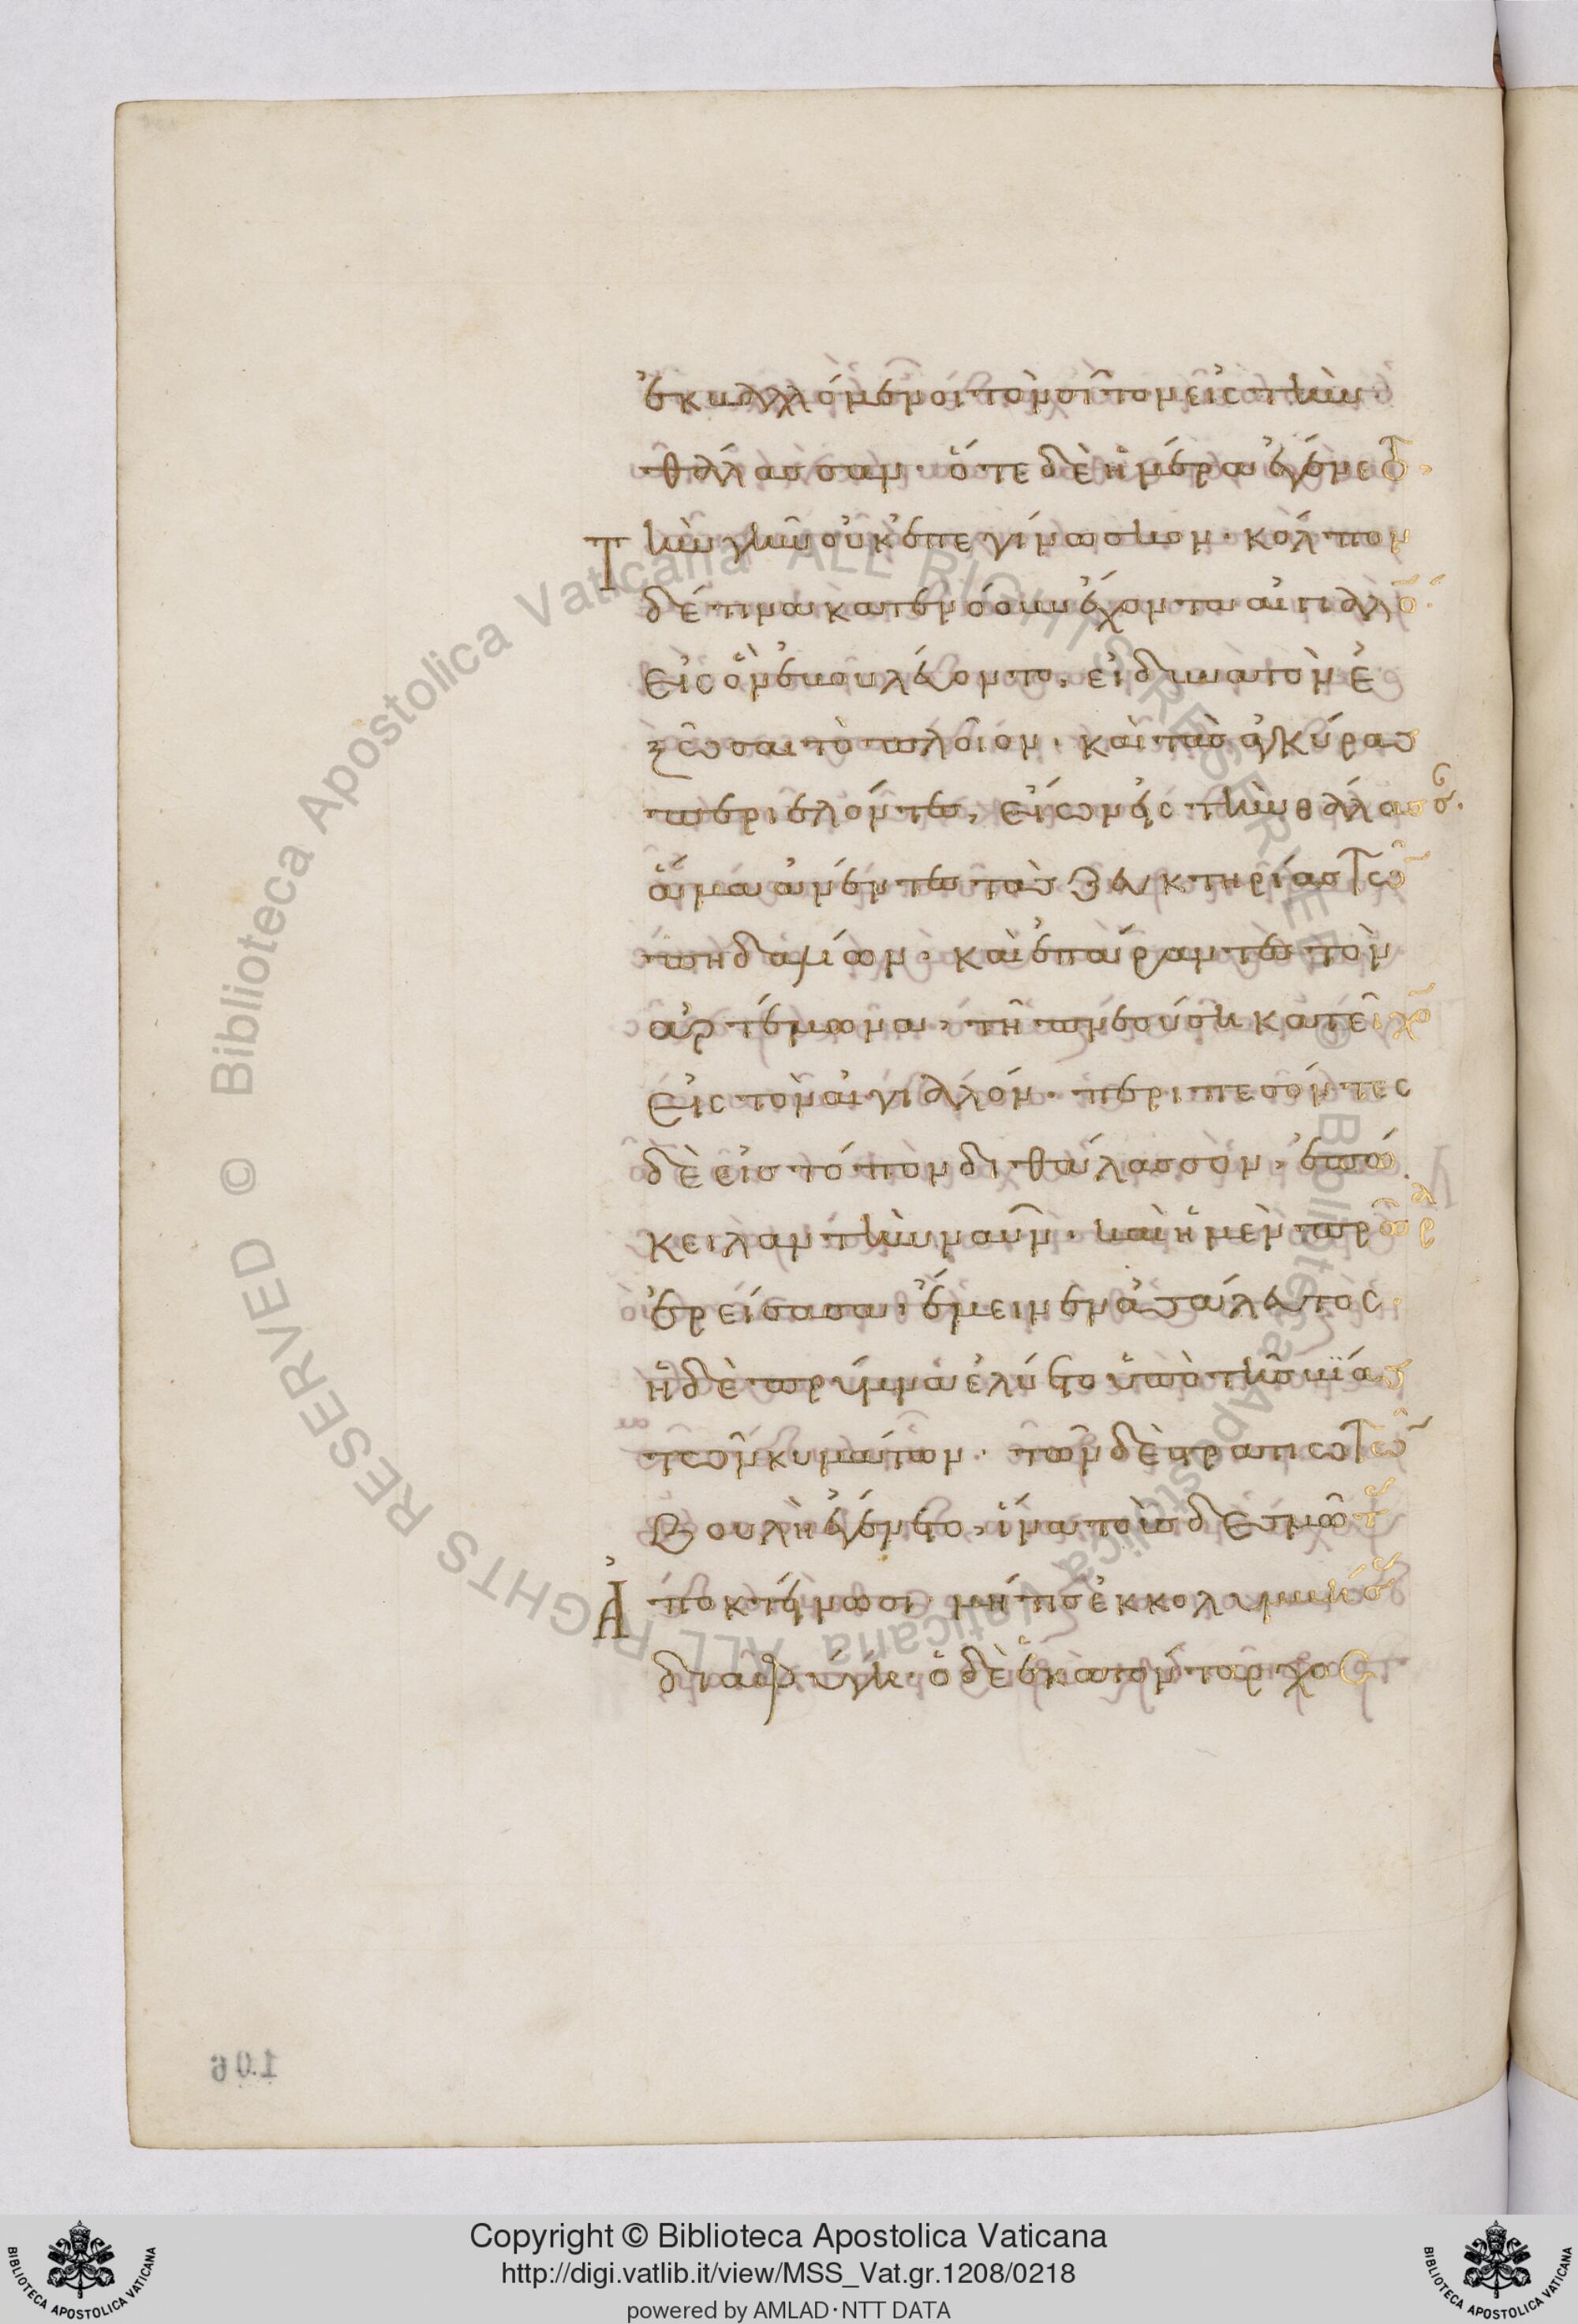 ἐκβαλλόμενοι τὸν σῖτον εἰς τὴν
θάλασσαν· ὅτε δὲ ἡμέρα ἐγένετο
Τὴν γῆν οὐκ ἐπεγίνωσκον· κόλπον
δέ τινα κατενόουν ἔχοντα αἰγιαλὸν·
Εἰς ὃν ἐβουλεύοντο, εἰ δυνατὸν ἐ
ξῶσαι τὸ πλοῖον· καὶ τὰς ἀγκύρας
περιελόντες, εἴων εἰς τὴν θάλασσαν·
ἅμα ἀνέντες τὰς ζευκτηρίας τῶν
πηδαλίων· καὶ ἐπάραντες τὸν
ἀρτέμωνα, τῇ πνεούσῃ κατεῖχον
Εἰς τὸν αἰγιαλόν· περιπεσόντες
δὲ εἰς τόπον διθάλασσον, ἐπώ
κειλαν τὴν ναῦν· καὶ ἡ μὲν πρῶρα
ἐρείσασα, ἔμεινεν ἀσάλευτος
ἡ δὲ πρύμνα ἐλύετο ὑπὸ τῆς βίας
τῶν κυμάτων· τῶν δὲ στρατιωτῶν
Βουλὴ ἐγένετο, ἵνα τοὺς δεσμώτας
Ἀποκτείνωσι μή τις ἐκκολυμβήσας
διαφύγῃ· ὁ δὲ ἑκατόνταρχος
106
© Biblioteca Apostolica Vaticana ALL RIGHTS RESERVED © Biblioteca Apostolica Vaticana ALL RIGHTS RESERVED
Copyright © Biblioteca Apostolica Vaticana
http://digi.vatlib.it/view/MSS_Vat.gr.1208/0218
powered by AMLAD·NTT DATA
BIBLIOTECA APOSTOLICA VATICANA
BIBLIOTECA APOSTOLICA VATICANA